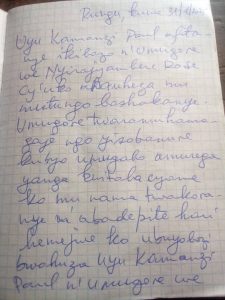 Rungu, kuwa 31/
Uyu Kamanzi Paul afita
nye ikibazo n'umugore
we Nyirajyambere Rose
cy'uko mu
mutungo bashakanye.
Umugore twaramuhama
gaye ngo yisobanure
kubyo umugabo amurega
yanga kwitaba cyane
ko mu nama twakora-
nye n'abadepite hari
hemejwe ko ubuyobozi
bwahuza uyu Kamanzi
Paul n'umugore we